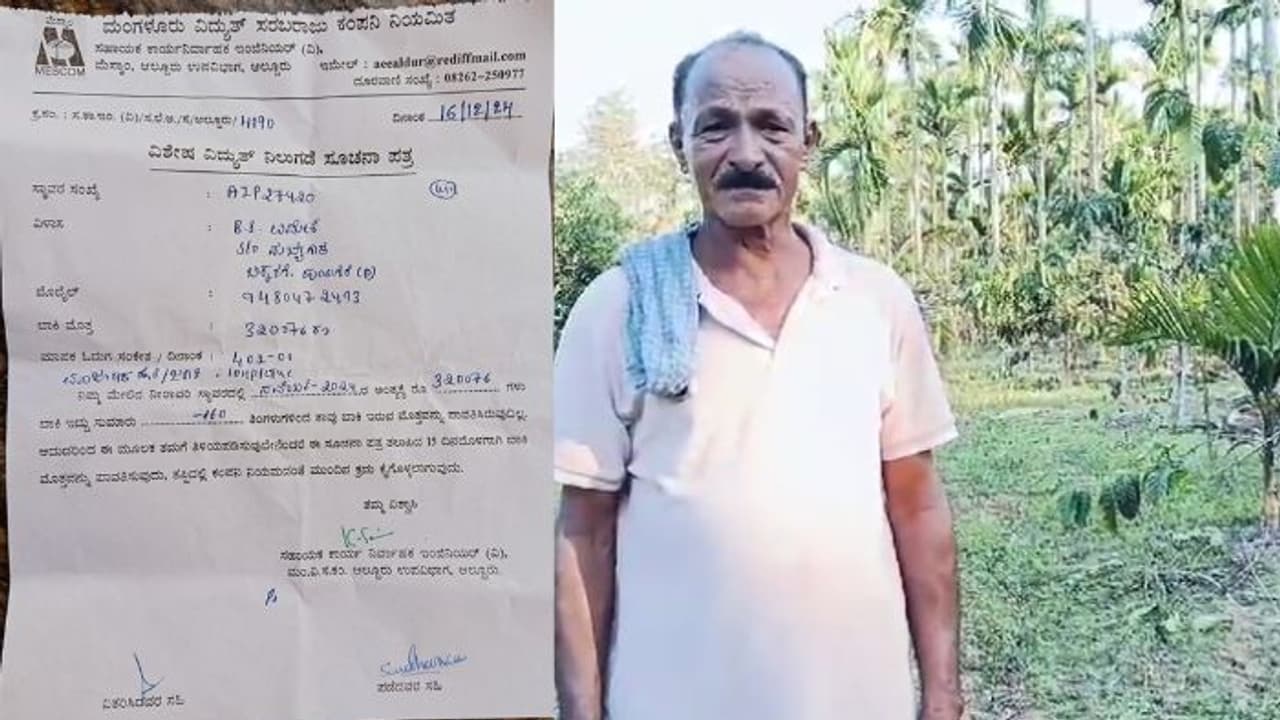 ಮಂಗಳೂರು ವಿದ್ಯುತ್ ಸರಬರಾಜು ಕಂಪನಿ ನಿಯಮಿತ
ಸಹಾಯಕ ಕಾರ್ಯನಿರ್ವಾಹಕ ಇಂಜಿನಿಯರ್ (ವಿ),
ಮೆಸ್ಕಾಂ, ಆಲ್ದೂರು ಉಪವಿಭಾಗ, ಆಲ್ದೂರು ಇಮೇಲ್ : aeealdur@rediffmail.com
ದೂರವಾಣಿ ಸಂಖ್ಯೆ : 08262-250977
ಮೆಸ್ಕಾಂ
MESCOM
ಕ್ರ.ಸಂ. : ಸ.ಕಾ.ಇಂ. (ವಿ)/ಸ.ಲೆ.ಅ./ಕ/ಆಲ್ದೂರು/4190 ದಿನಾಂಕ 16/12/24
ವಿಶೇಷ ವಿದ್ಯುತ್ ನಿಲುಗಡೆ ಸೂಚನಾ ಪತ್ರ
ಸ್ಥಾವರ ಸಂಖ್ಯೆ : AIP27420
ವಿಳಾಸ : B.S.
S/O
ಮೊಬೈಲ್ : 9480472493
ಬಾಕಿ ಮೊತ್ತ : 320076
ಮಾಪಕ ಓದುಗ ಸಂಕೇತ / ದಿನಾಂಕ : 402-01
ನಿಮ್ಮ ಮೇಲಿನ ನೀರಾವರಿ ಸ್ಥಾವರದಲ್ಲಿ 2024 ರ ಅಂತ್ಯಕ್ಕೆ ರೂ 320076 ಗಳು
ಬಾಕಿ ಇದ್ದು ಸುಮಾರು -160 ತಿಂಗಳುಗಳಿಂದ ತಾವು ಬಾಕಿ ಇರುವ ಮೊತ್ತವನ್ನು ಪಾವತಿಸಿರುವುದಿಲ್ಲ.
ಆದುದರಿಂದ ಈ ಮೂಲಕ ತಮಗೆ ತಿಳಿಯಪಡಿಸುವುದೇನೆಂದರೆ ಈ ಸೂಚನಾ ಪತ್ರ ತಲುಪಿದ 15 ದಿನದೊಳಗಾಗಿ ಬಾಕಿ
ಮೊತ್ತವನ್ನು ಪಾವತಿಸುವುದು, ತಪ್ಪಿದಲ್ಲಿ ಕಂಪನಿ ನಿಯಮದಂತೆ ಮುಂದಿನ ಕ್ರಮ ಕೈಗೊಳ್ಳಲಾಗುವುದು.
ತಮ್ಮ ವಿಶ್ವಾಸಿ
ಸಹಾಯಕ ಕಾರ್ಯ ನಿರ್ವಾಹಕ ಇಂಜಿನಿಯರ್ (ವಿ),
ಮಂ.ವಿ.ಸ.ಕಂ. ಆಲ್ದೂರು ಉಪವಿಭಾಗ, ಆಲ್ದೂರು.
ವಿತರಿಸಿದವರ ಸಹಿ
ಪಡೆದವರ ಸಹಿ